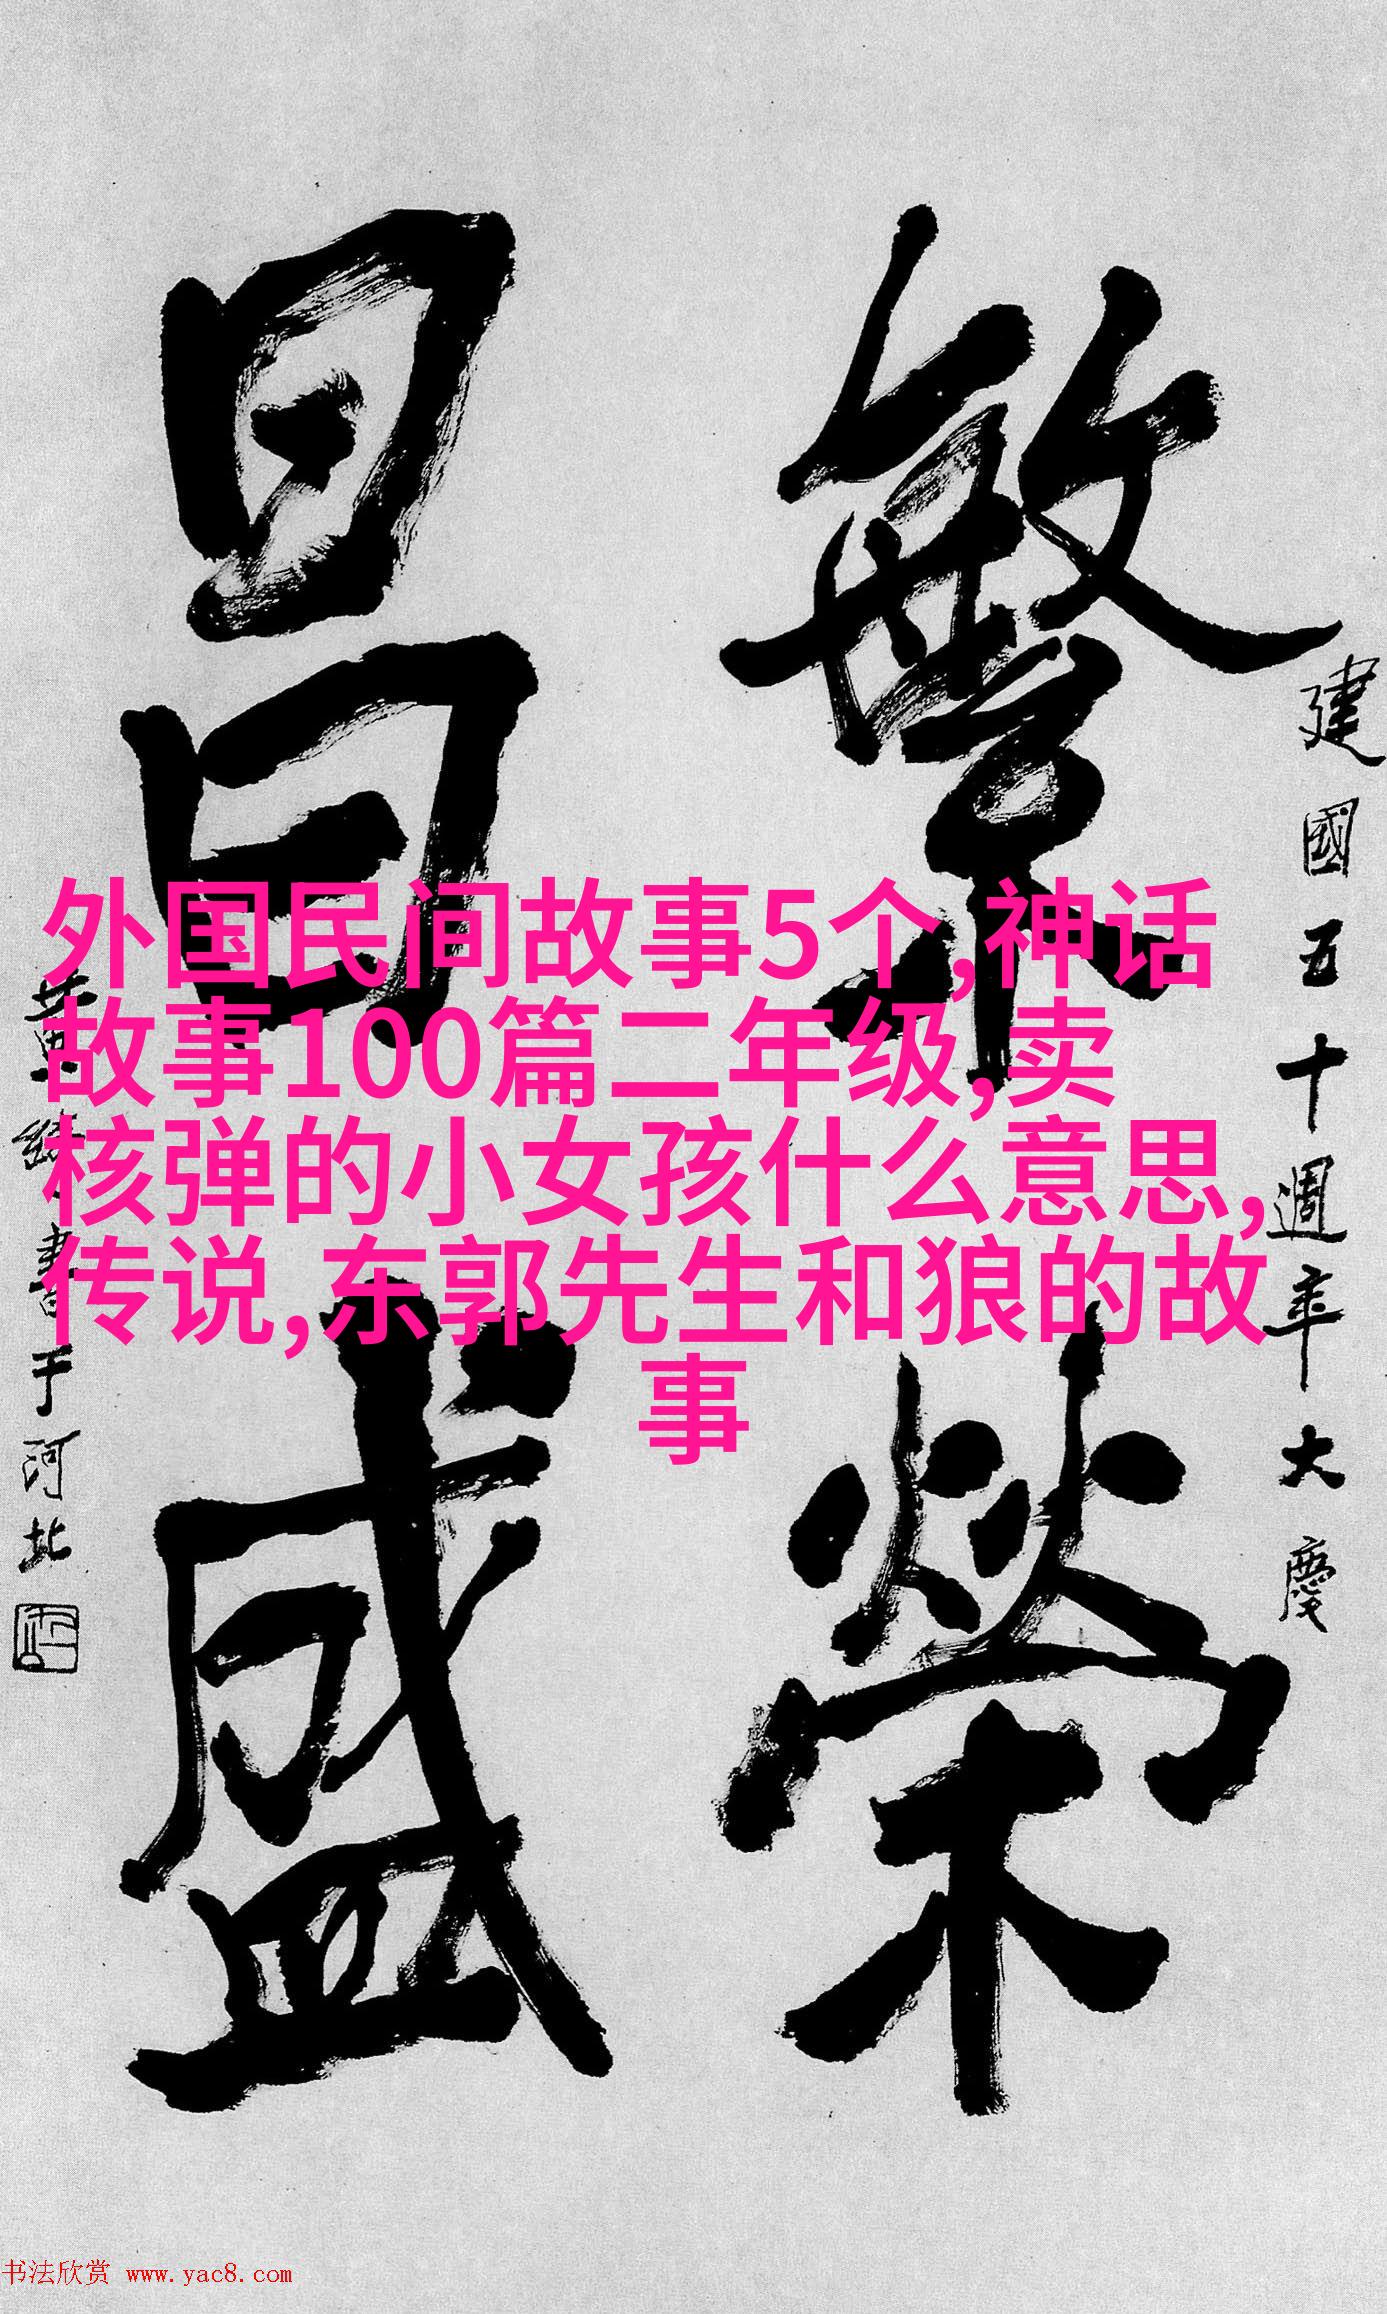 繁榮
昌盛
建國五十週年大慶
黄綺書于河北
外国民间故事5个,神话
故事100篇二年级,卖
核弹的小女孩什么意思,
传说,东郭先生和狼的故
事
书法欣赏 www.yac8.com